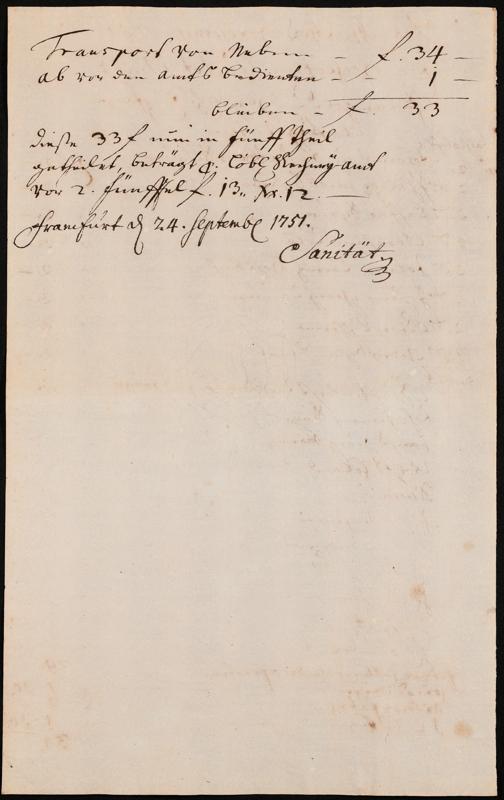 Transport von Neben — f. 34 —
ab vor den Amts bedienten — — 1 —
bleiben — f. 33
dieße 33 f nun in fünff theil
getheilet, beträgt p. löbl. Rechney-Amt
vor 2. fünfftel f. 13. Xr. 12. —
Franckfurt d. 24. Septembr. 1751.
Sanität